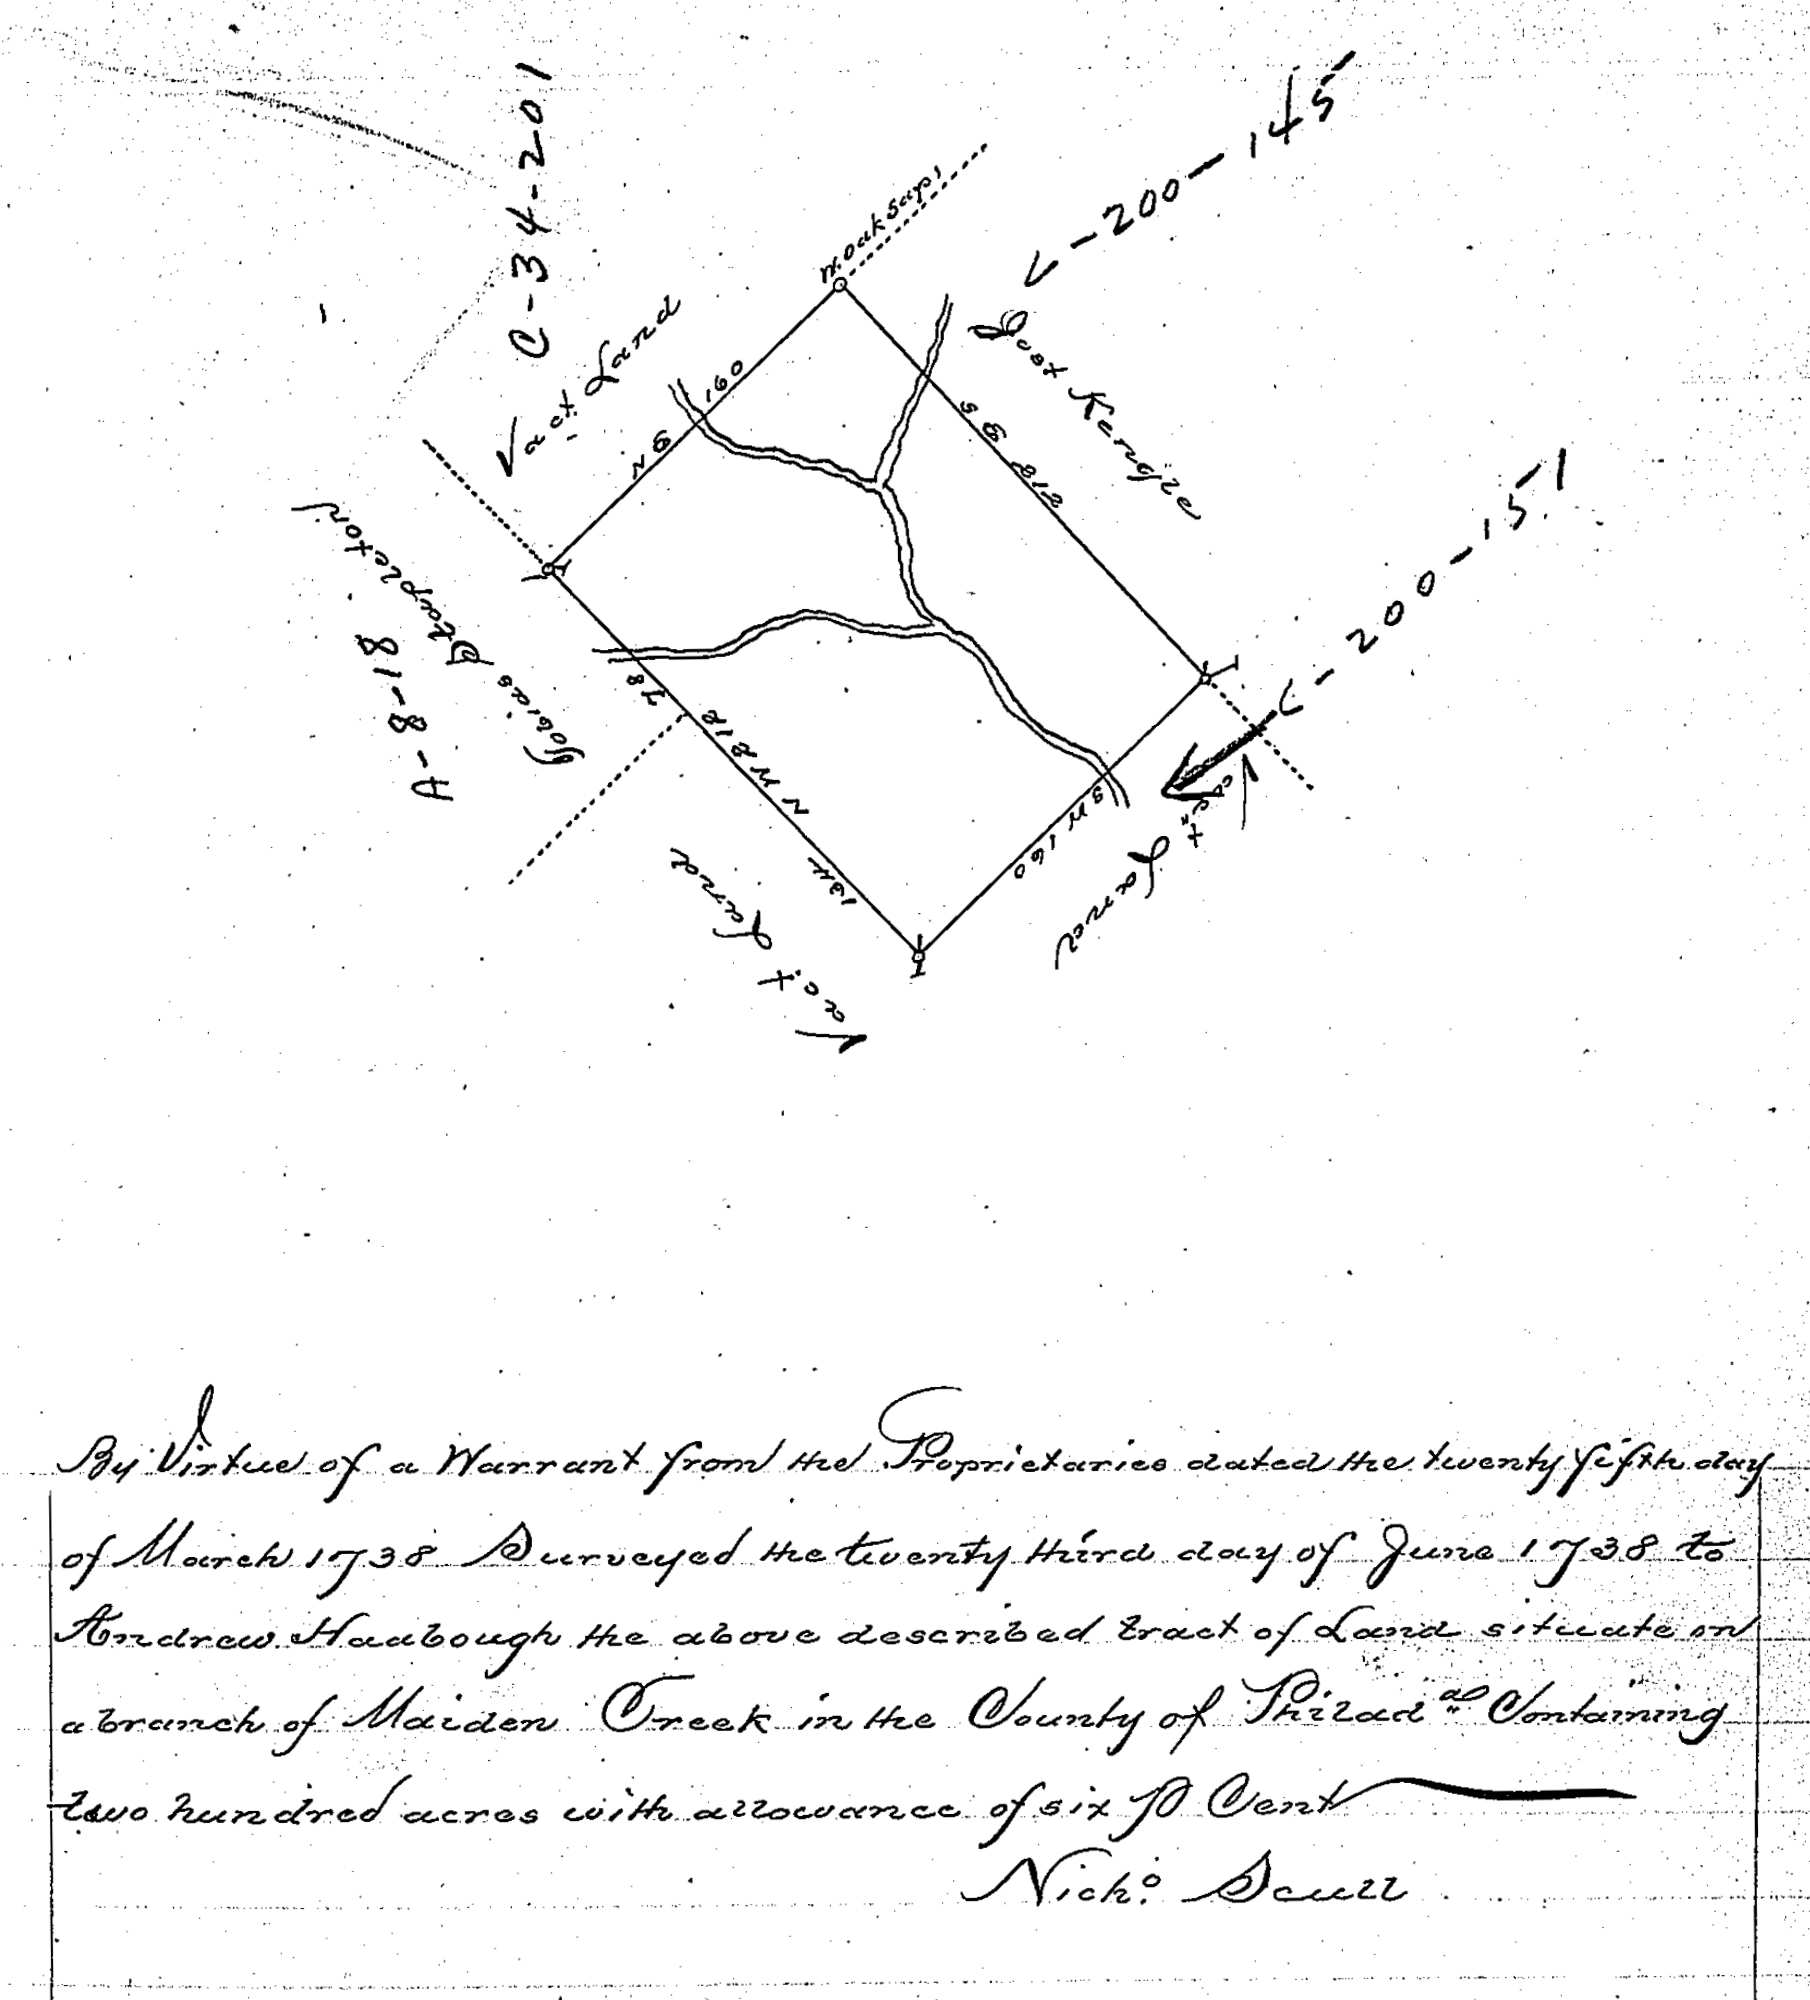 C-34-201
V-200-145
W. oak Sap,
Vact. Land
N E 160
Jost Kengle
S E 212
V-200-151
Tobias Stapleton
A-8-18
78
N W 212
134
Vact. Land
S W 160
Vact Land
By Virtue of a Warrant from the Proprietaries dated the twenty fifth day
of March 1738 Surveyed the twenty third day of June 1738 to
Andrew Haabough the above described tract of Land situate on
a branch of Maiden Creek in the County of Philad.ᵃ Containing
two hundred acres with allowance of six ⅌ Cent
Nich.º Scull